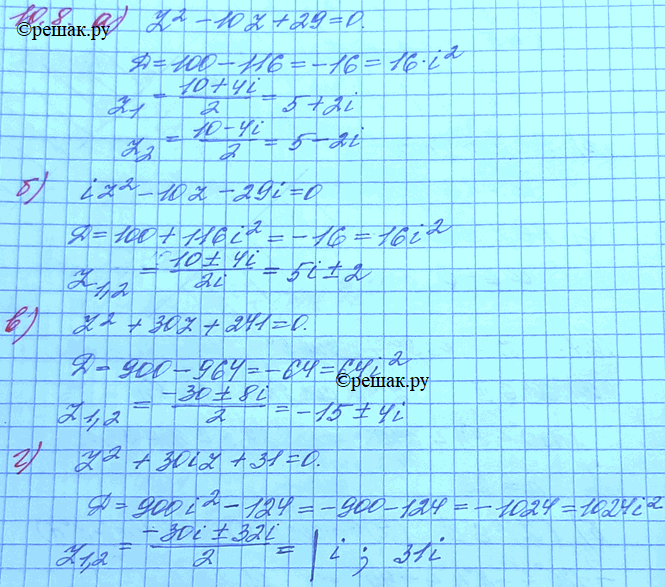 10.8. а) z² - 10z + 29 = 0.
©решак.ру
Д = 100 - 116 = -16 = 16·i²
z₁ = (10+4i)/2 = 5+2i
z₂ = (10-4i)/2 = 5-2i
б) iz² - 10z - 29i = 0
Д = 100 + 116i² = -16 = 16i²
z₁,₂ = (10 ± 4i)/2i = 5i ± 2
в) z² + 30z + 241 = 0.
Д = 900 - 964 = -64 = 64i²
©решак.ру
z₁,₂ = (-30 ± 8i)/2 = -15 ± 4i
г) z² + 30iz + 31 = 0.
Д = 900i² - 124 = -900 - 124 = -1024 = 1024i²
z₁,₂ = (-30i ± 32i)/2 = | i ; 31i